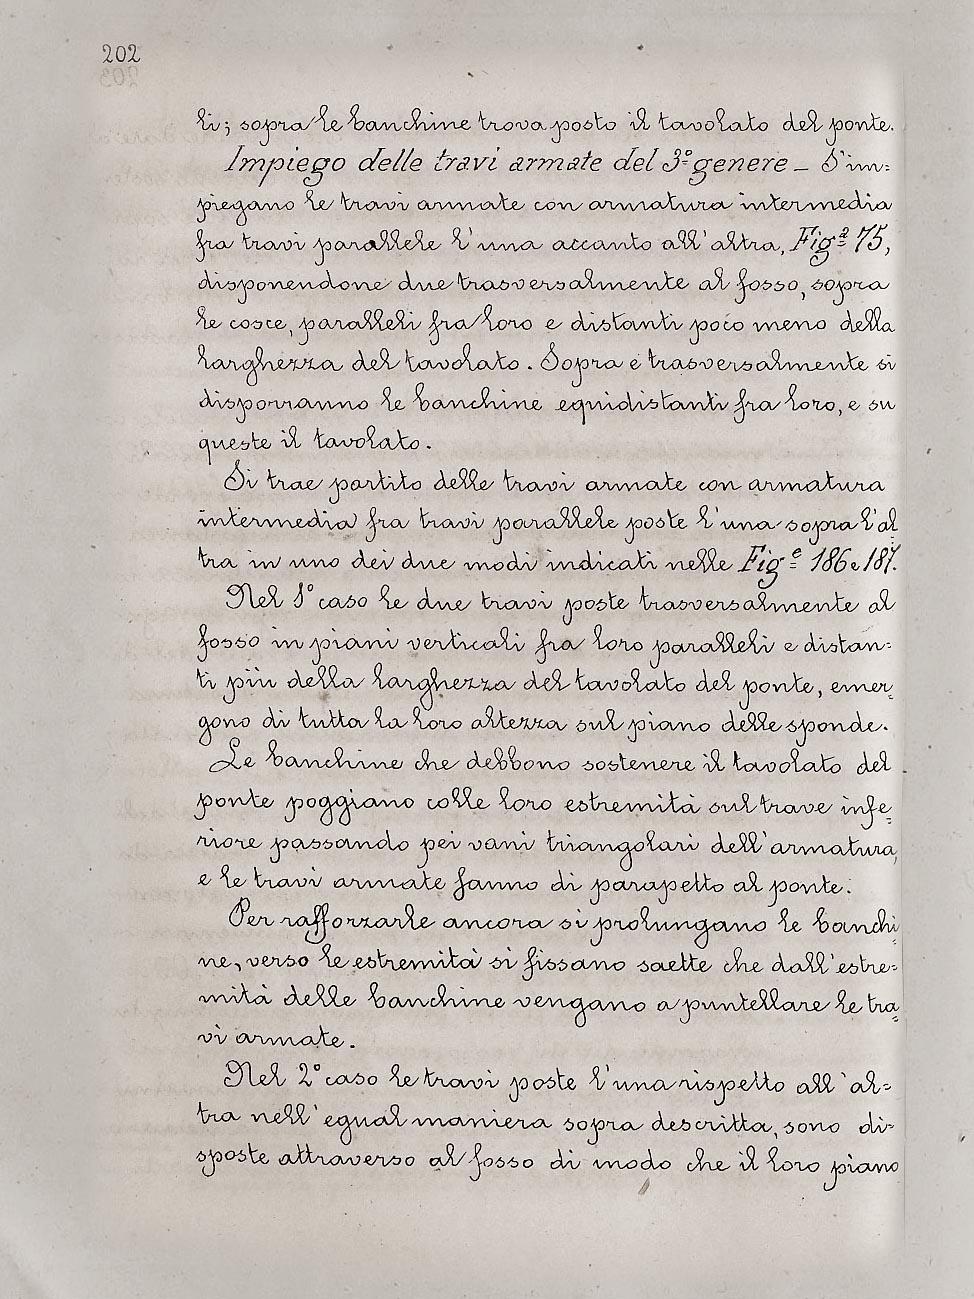 202
li; sopra le banchine trova posto il tavolato del ponte.
Impiego delle travi armate del 3º genere – S'im=
piegano le travi armate con armatura intermedia
fra travi parallele l'una accanto all'altra, Figª 75,
disponendone due trasversalmente al fosso, sopra
le cosce, paralleli fra loro e distanti poco meno della
larghezza del tavolato. Sopra e trasversalmente si
disporranno le banchine equidistanti fra loro, e su
queste il tavolato.
Si trae partito delle travi armate con armatura
intermedia fra travi parallele poste l'una sopra l'al
tra in uno dei due modi indicati nelle Figᵉ 186 e 187.
Nel 1º caso le due travi poste trasversalmente al
fosso in piani verticali fra loro paralleli e distan=
ti più della larghezza del tavolato del ponte, emer=
gono di tutta la loro altezza sul piano delle sponde.
Le banchine che debbono sostenere il tavolato del
ponte poggiano colle loro estremità sul trave infe=
riore passando pei vani triangolari dell'armatura,
e le travi armate fanno di parapetto al ponte.
Per rafforzarle ancora si prolungano le banchi=
ne, verso le estremità si fissano saette che dall'estre=
mità delle banchine vengano a puntellare le tra=
vi armate.
Nel 2º caso le travi poste l'una rispetto all'al=
tra nell'egual maniera sopra descritta, sono di=
sposte attraverso al fosso di modo che il loro piano